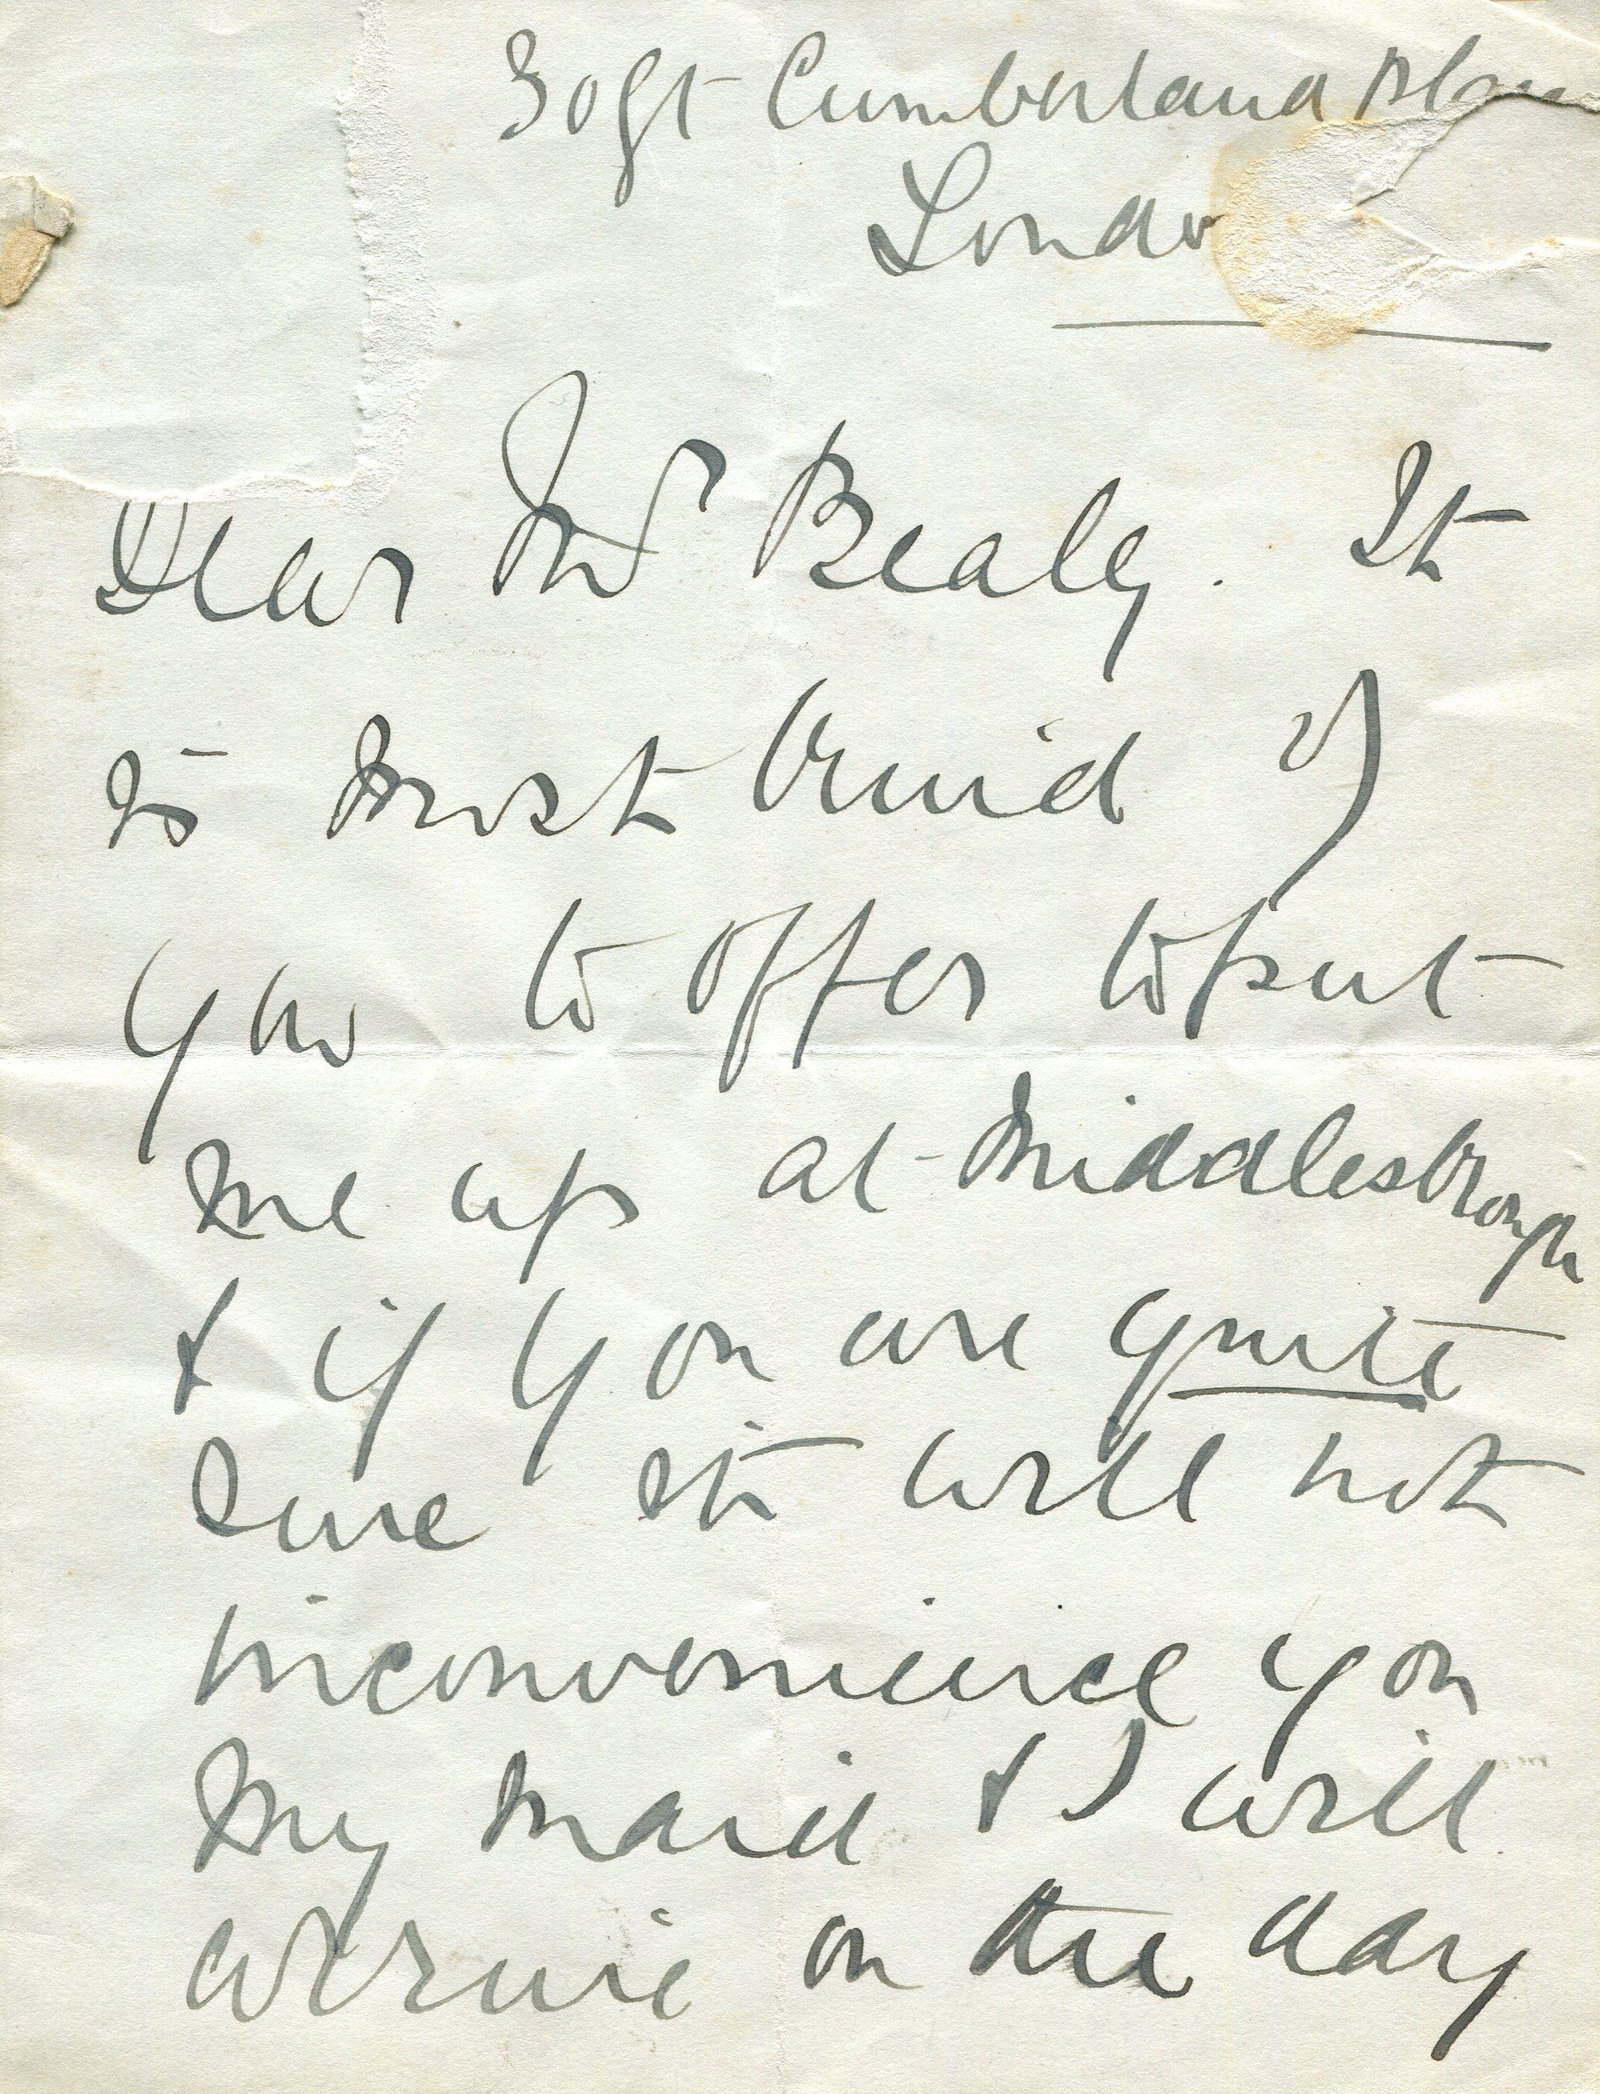 30 Gt Cumberland Place
London
Dear Mr Bealey. It
is most kind of
you to offer to put
me up at Middlesbrough
& if you are quite
sure it will not
inconvenience you
my maid & I will
arrive on the day